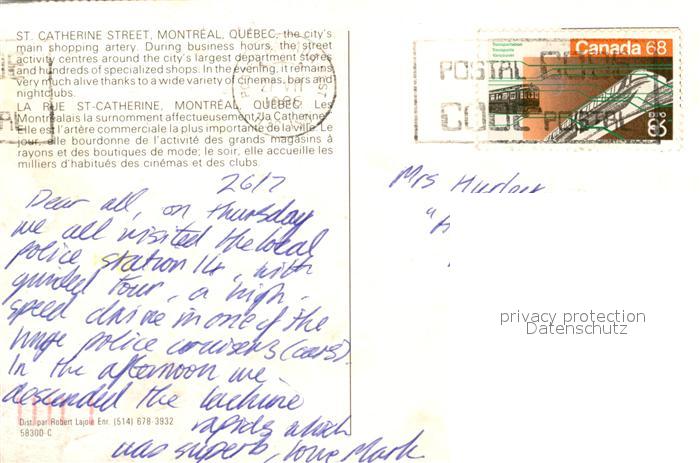 ST. CATHERINE STREET, MONTRÉAL, QUÉBEC, the city's
main shopping artery. During business hours, the street
activity centres around the city's largest department stores
and hundreds of specialized shops. In the evening, it remains
very much alive thanks to a wide variety of cinemas, bars and
nightclubs.
LA RUE ST-CATHERINE, MONTRÉAL, QUÉBEC Les
Montréalais la surnomment affectueusement "la Catherine".
Elle est l'artère commerciale la plus importante de la ville. Le
jour, elle bourdonne de l'activité des grands magasins à
rayons et des boutiques de mode; le soir, elle accueille les
milliers d'habitués des cinémas et des clubs.
26/7
Dear all, on thursday
we all visited the local
police station 14, with
guided tour, a high
speed drive in one of the
huge police cruisers (cars).
In the afternoon we
descended the lachine
rapids which
was superb, love Mark
Dist. par Robert Lajoie Enr. (514) 678-3932
58300-C
Transportation
Transports
Vancouver
Canada 68
EXPO
86
POSTAL CODE
CODE POSTAL
Mrs
privacy protection
Datenschutz